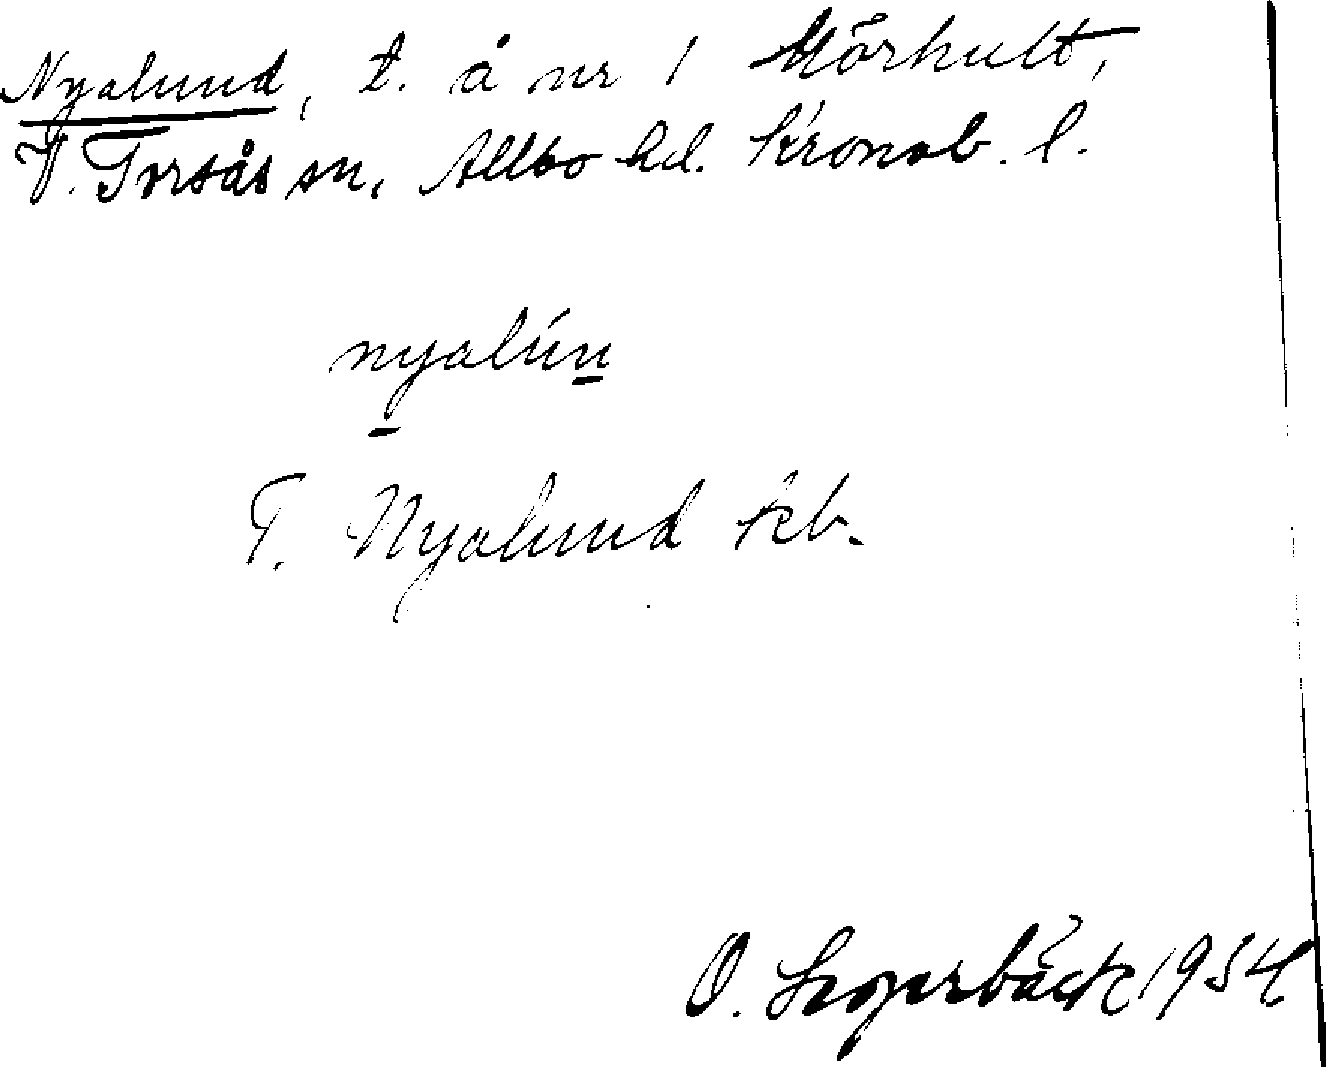 Nyalund, t. å nr 1 Mörhult,
V. Torsås sn, Allbo hd. Kronob. l.
nyalún
T. Nyalund kb.
O. 1954